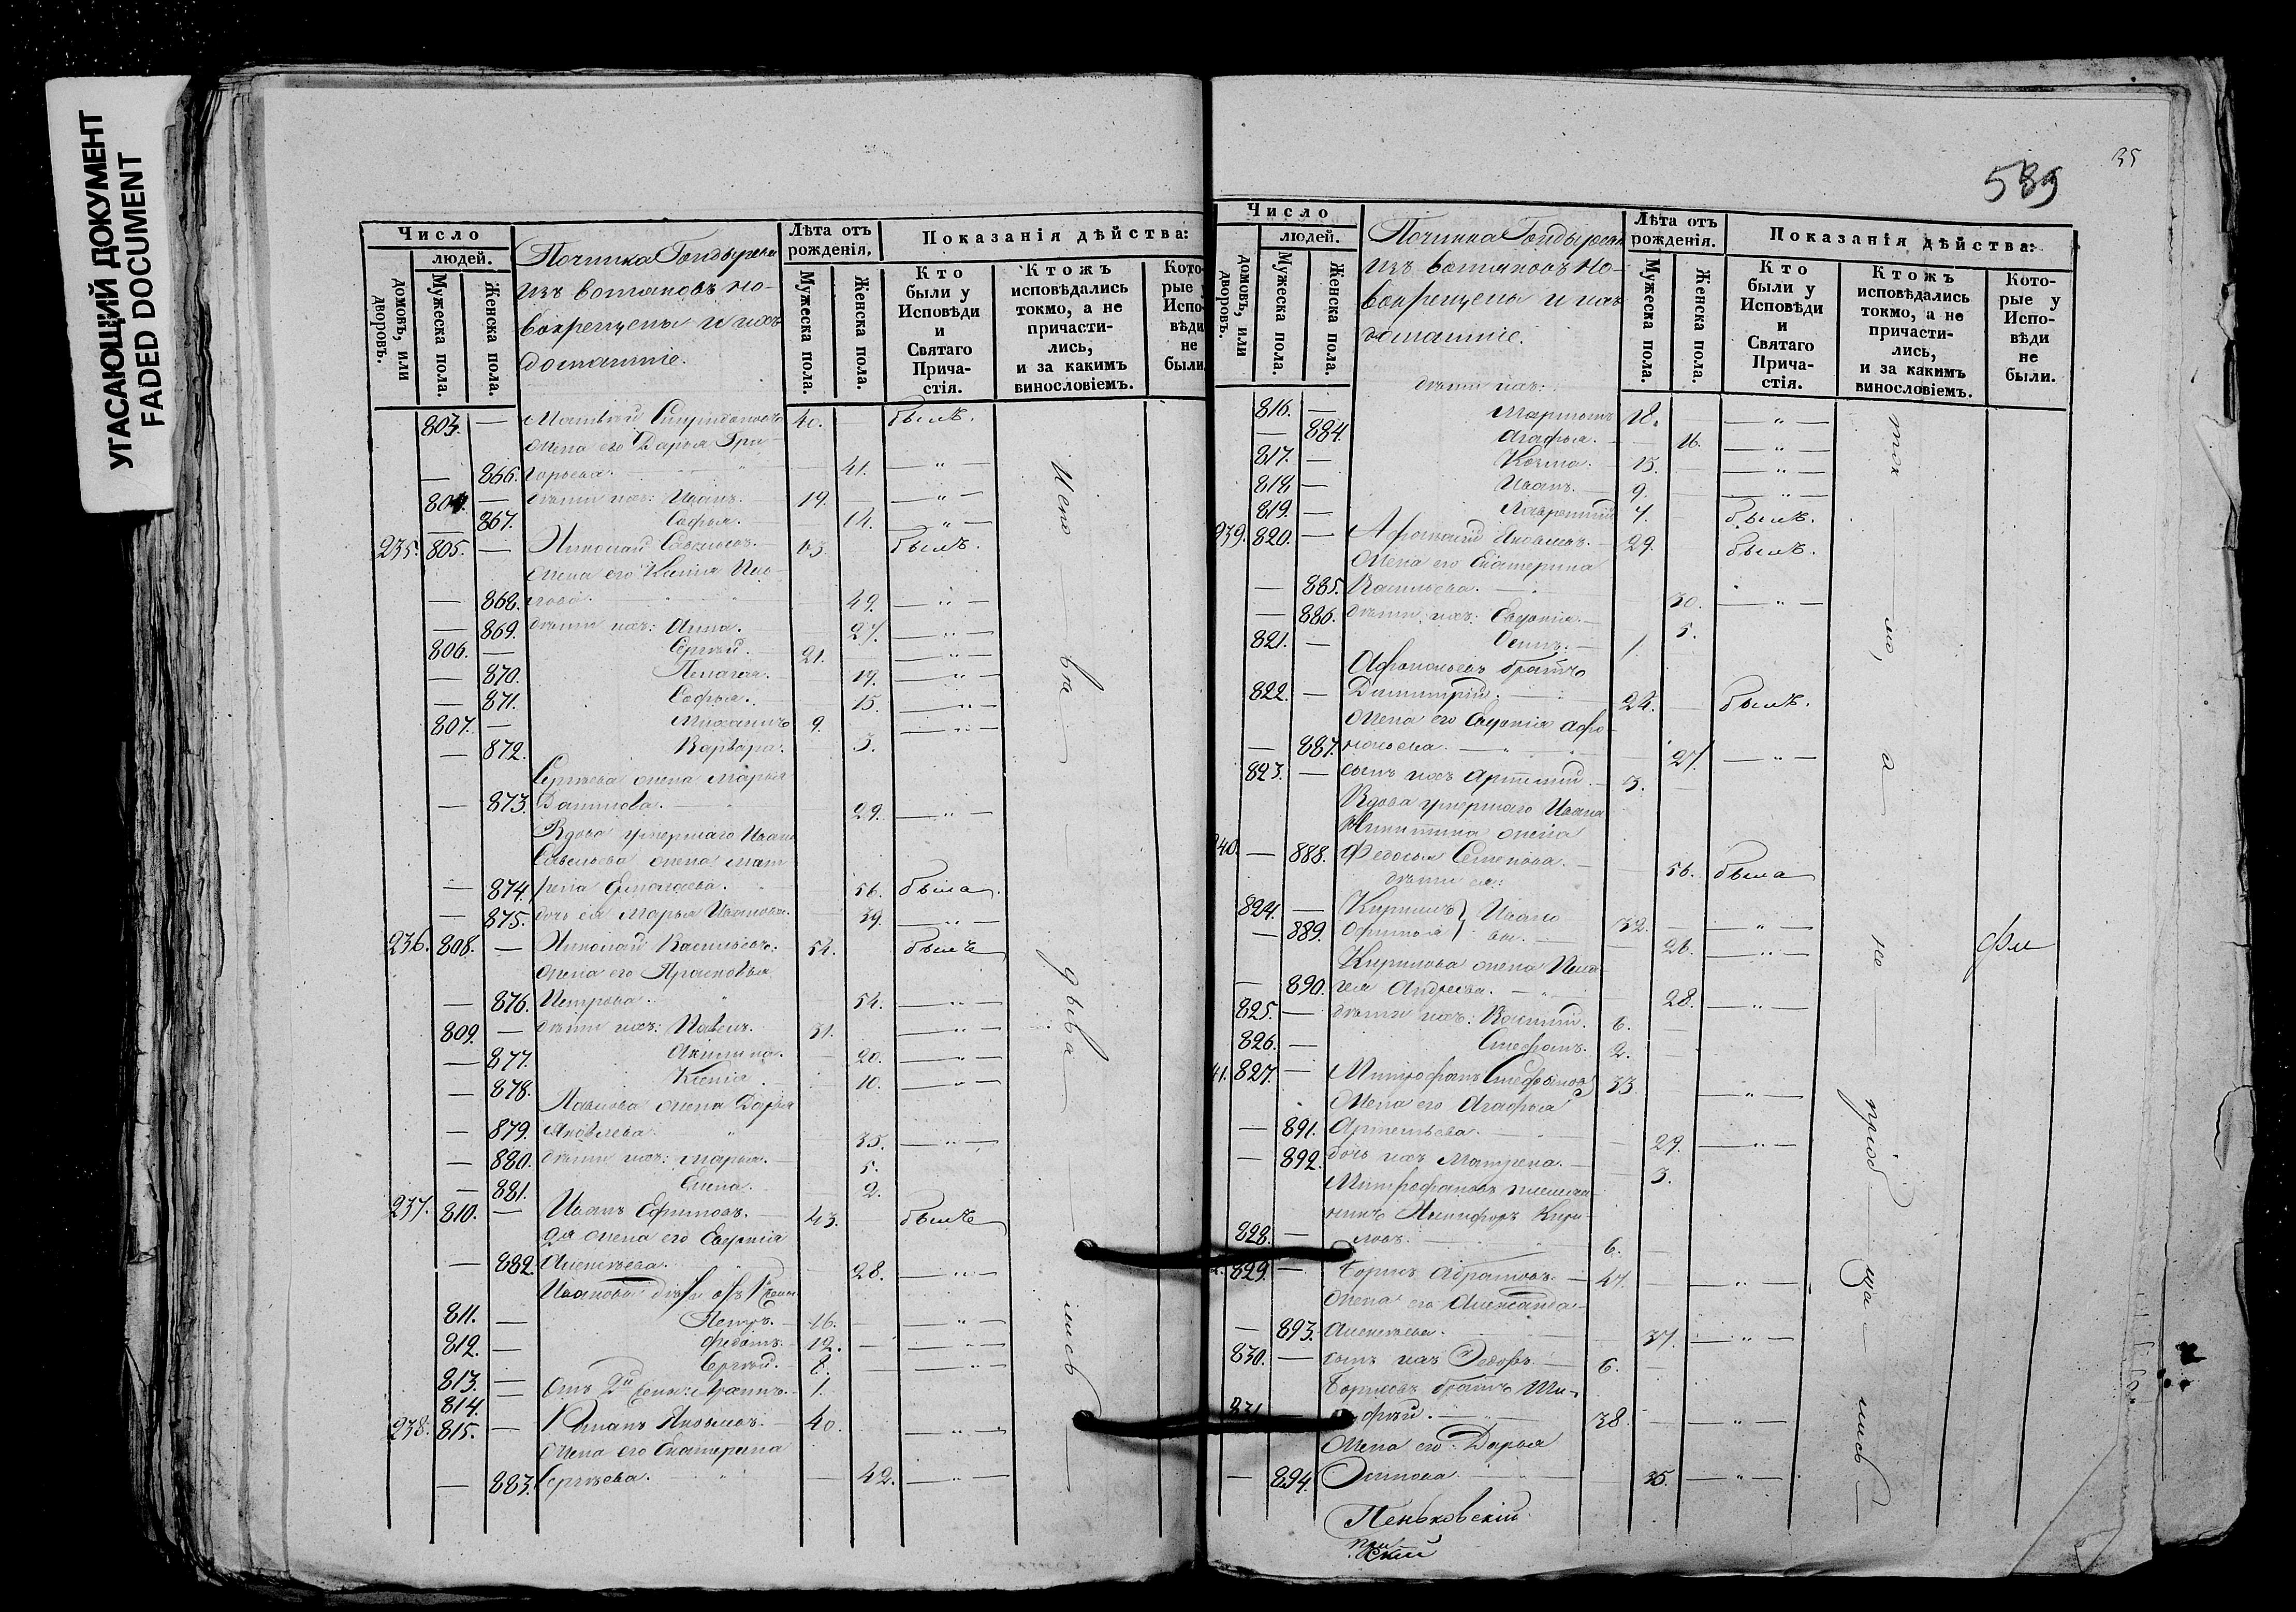 УГАСАЮЩИЙ ДОКУМЕНТ
FADED DOCUMENT
Число
людей.
домовъ, или дворовъ.
Мужеска пола.
Женска пола.
Починка Гондырева
изъ вотяковъ но-
вокрещены и ихъ
домашніе.
Лѣта отъ рожденія.
Мужеска пола.
Женска пола.
Показанія дѣйства:
Кто были у Исповѣди и Святаго Прича-стія.
Ктожъ исповѣдались токмо, а не причасти-лись, и за какимъ винословіемъ.
Кото-рые у Испо-вѣди не были.
803. — Матвѣй Спиридоновъ 40. былъ.
жена его Дарья Гри-
— 866. горьева. 41. — " —
804. — дѣти ихъ: Иванъ. 19. — " —
— 867. Софья. 12. — " —
235. 805. — Николай Савельевъ. былъ.
жена его Ксенія
— 868. 49. — " —
— 869. дѣти ихъ: Анна. 27. — " —
806. — Сергѣй. 21. — " —
— 870. Пелагея. 19. — " —
— 871. Софья. 15. — " —
807. — Михаилъ 9. — " —
— 872. Варвара. 3.
Сергѣева жена Марья
— 873. Данилова. 29. — " —
Вдова умершаго Ивана
Савельева жена Мат-
— 874. рена Ермолаева. 56. была
— 875. дочь ея Марья Иванова. 39. — " —
236. 808. — Николай Васильевъ. 52. былъ
жена его Прасковья
— 876. Петрова. 52. — " —
809. — дѣти ихъ: Павелъ. 31. — " —
— 877. Акилина. 20. — " —
— 878. Ксенія. 10. — " —
Павлова жена Дарья
— 879. Яковлева. 35. — " —
— 880. дѣти ихъ: Марья. 5.
— 881. Елена. 2.
237. 810. — Иванъ Ефимовъ. 43. былъ
2я жена его Евфимія
— 882. Алексѣева. 28. — " —
Ивановы дѣти отъ 1й жены
811. — Петръ. 16. — " —
812. — Федотъ. 12. — " —
813. — Сергѣй. 8. — " —
814. отъ 2й жены: 1.
238. 815. — Романъ Яковлевъ. 40. — " —
жена его Екатерина
— 883. Сергѣева. 42. — " —
Испо — вѣ — дыва — лись
589
35
Число
людей.
домовъ, или дворовъ.
Мужеска пола.
Женска пола.
Починка Гондырева
изъ вотяковъ но-
вокрещены и ихъ
домашніе.
Лѣта отъ рожденія.
Мужеска пола.
Женска пола.
Показанія дѣйства:
Кто были у Исповѣди и Святаго Прича-стія.
Ктожъ исповѣдались токмо, а не причасти-лись, и за какимъ винословіемъ.
Кото-рые у Испо-вѣди не были.
дѣти ихъ:
816. — 18. — " —
— 884. Агафья. 16. — " —
817. — Козма. 13. — " —
818. — Иванъ. 9. — " —
819. — Лаврентій 7. былъ.
239. 820. — Афанасій Яковлевъ. 29. былъ.
жена его Екатерина
— 885. Васильева. 30. — " —
— 886. дѣти ихъ: Евдокія. 5.
821. — Осипъ. 1.
Афанасьевъ братъ
822. — Димитрій. 24. былъ.
жена его Евдокія Афа-
— 887. насьева. 27. — " —
823. — сынъ ихъ Артемій. 3.
Вдова умершаго Ивана
Никитина жена
240. — 888. Федосья Семенова. 56. была
дѣти ея:
824. — Кирилъ } Ивано 32. — " —
— 889. Офимья } вы. 26. — " —
Кирилова жена Пела-
— 890. гея Андреева. 28. — " —
825. — дѣти ихъ: Василій. 6.
826. — Стефанъ. 2.
241. 827. — Митрофанъ Стефановъ 33. — " —
жена его Агафья
— 891. Артемьева. 29. — " —
— 892. дочь ихъ Матрена. 3.
Митрофановъ племян-
никъ Никифоръ Кири-
828. — ловъ. 6.
829. — Борисъ Абрамовъ. 47. — " —
жена его Александра
— 893. Алексѣева. 37. — " —
830. — сынъ ихъ Федоръ. 6.
Борисовъ братъ Ти-
831. — мофѣй. 38. — " —
жена его Дарья
— 894. Осипова. 35. — " —
ток — мо, а — не — пріоб — ща — лись
Пеньковскій